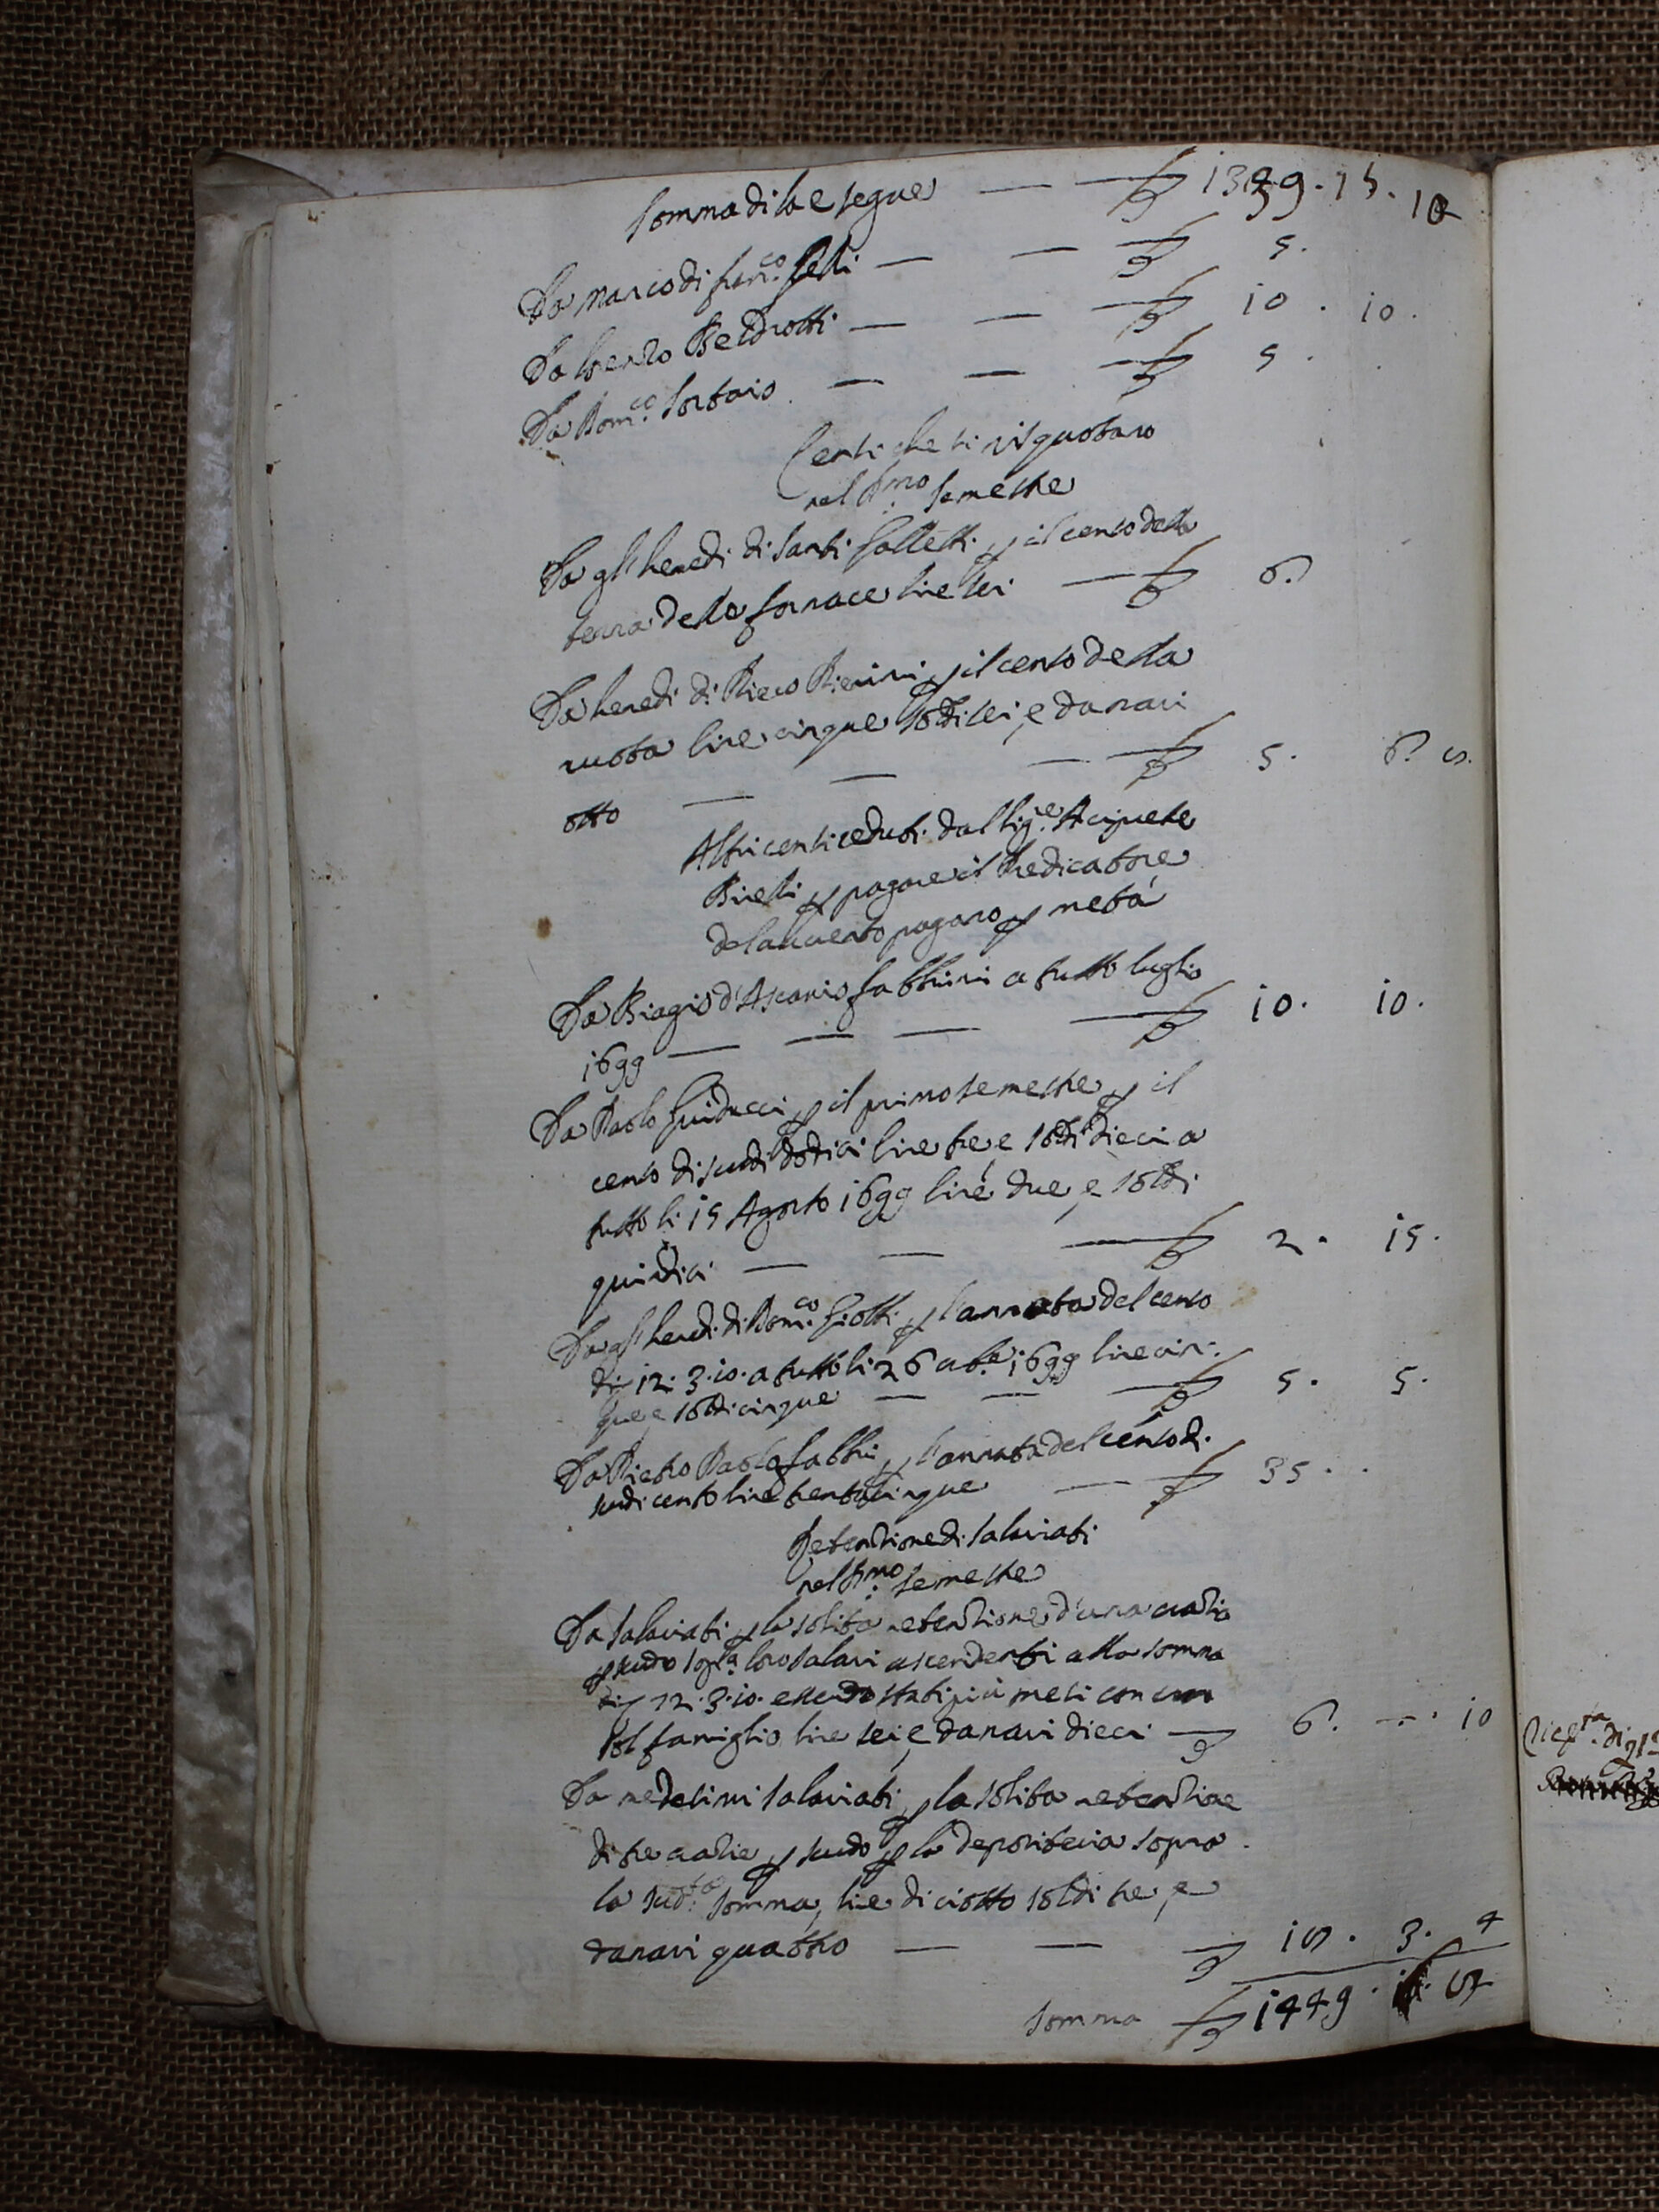 Somma di la e segue — — ₶ 1339. 15. 10
Da Marco di Fran.co Selli — — ₶ 5.
Da Lorenzo Beldrotti — — ₶ 10. 10.
Da Dom.co Sortaio — — ₶ 5.
Censi che si risquotano
nel P.mo semestre
Da gl'heredi di Santi Galletti p il censo della
terra della fornace lire sei — ₶ 6.
Da heredi di Piero Pierini p il censo della
ruota lire cinque soldi sei, e danari
otto — — — ₶ 5. 6. 8.
Altri censi ceduti dal Sig.e
p pagare il Predicatore
dell'avvento pagano p metà
Da Biagio d'Ascanio Fabbrini a tutto luglio
1699 — — — ₶ 10. 10.
Da Paolo Guiducci p il primo semestre p il
censo di scudi dodici lire tre e soldi dieci a
tutto li 15 Agosto 1699 lire due, e soldi
quindici — — ₶ 2. 15.
Da gl'heredi di Dom.co Giotti p l'annata del censo
di 12. 3. 10. a tutto li 26 1699 lire cin:
que, e soldi cinque — — ₶ 5. 5.
Da Pietro Paolo Fabbri p l'annata del censo di
scudi cento lire trentacinque — ₶ 35.
Retentione di salariati
nel P.mo semestre
Da salariati p la solita retentione d'una crazia
p scudo sop.a loro salari ascendenti alla somma
di 72. 3. 10. essendo stati più mesi con un
sol famiglio, lire sei, e danari dieci — 6. —. 10
Da medesimi salariati p la solita retentione
di tre crazie p scudo p la depositeria sopra
la sud.ta somma, lire diciotto soldi tre, e
danari quattro — — 18. 3. 4
Somma ₶ 1449. 8